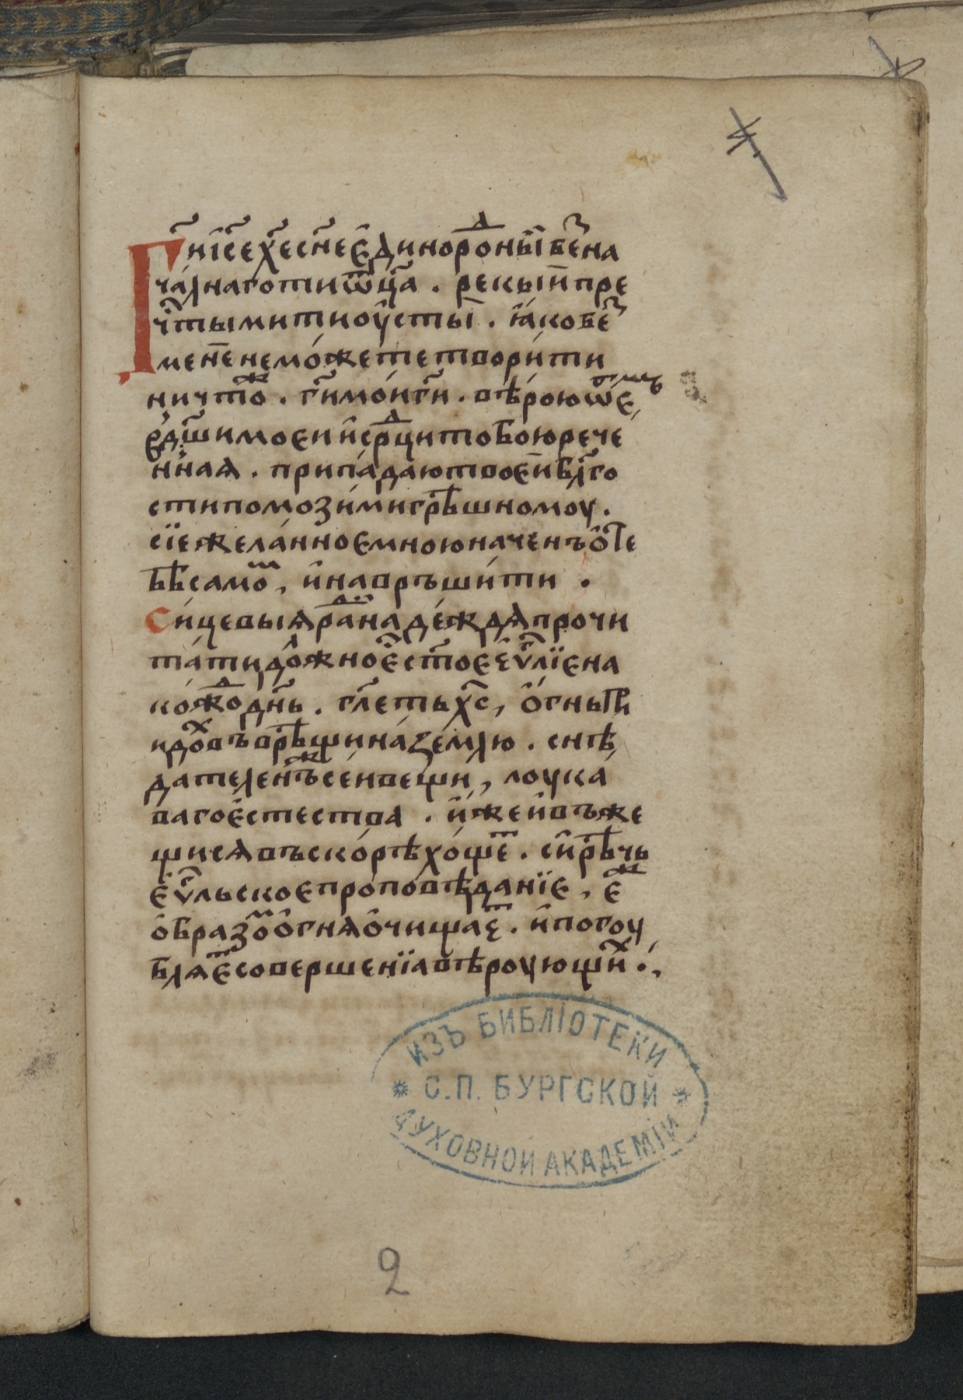 Ги҃ і҃се х҃е сн҃е є҆динорⷪ҇дныи беⷥ҇на
чалнаго ти ѿц҃а. рекыи пре
чⷭ҇тыми ти оусты. ꙗко беⷥ
мене не може те творити
ничтоⷤ. ги҃ мои ги҃. вѣрою ѡбⸯемъ
є дш҃и моеи и срⷣци тобою рече
нная. припадаю твоеи бл҃го
сти помози ми грѣшномоу.
сїе желанное мною наченъ о те
бѣ самоⷨ, и навръшити.
Сицевыя раⷣ надеждя прочи
тати должно єⷭ҇ ст҃ое еѵⷢ҇лїе на
кожⷣо дн҃ь. гл҃еть хⷭ҇ъ, огнь прї
идоⷯ въврѣщи на землю. снѣ
дателенъⷤ сеи вещи, лоука
ваго естества. иже и въже
щися въскорѣ хощеⷮ. сирѣчь
еѵⷢ҇льское проповѣданїе, еⷤ
образоⷨ огня очищаеⷮ. и погоу
бляеⷮ совершенїа вѣроующиⷯ.,
ИЗЪ БИБЛІОТЕКИ
С.П. БУРГСКОЙ
ДУХОВНОЙ АКАДЕМІИ
2